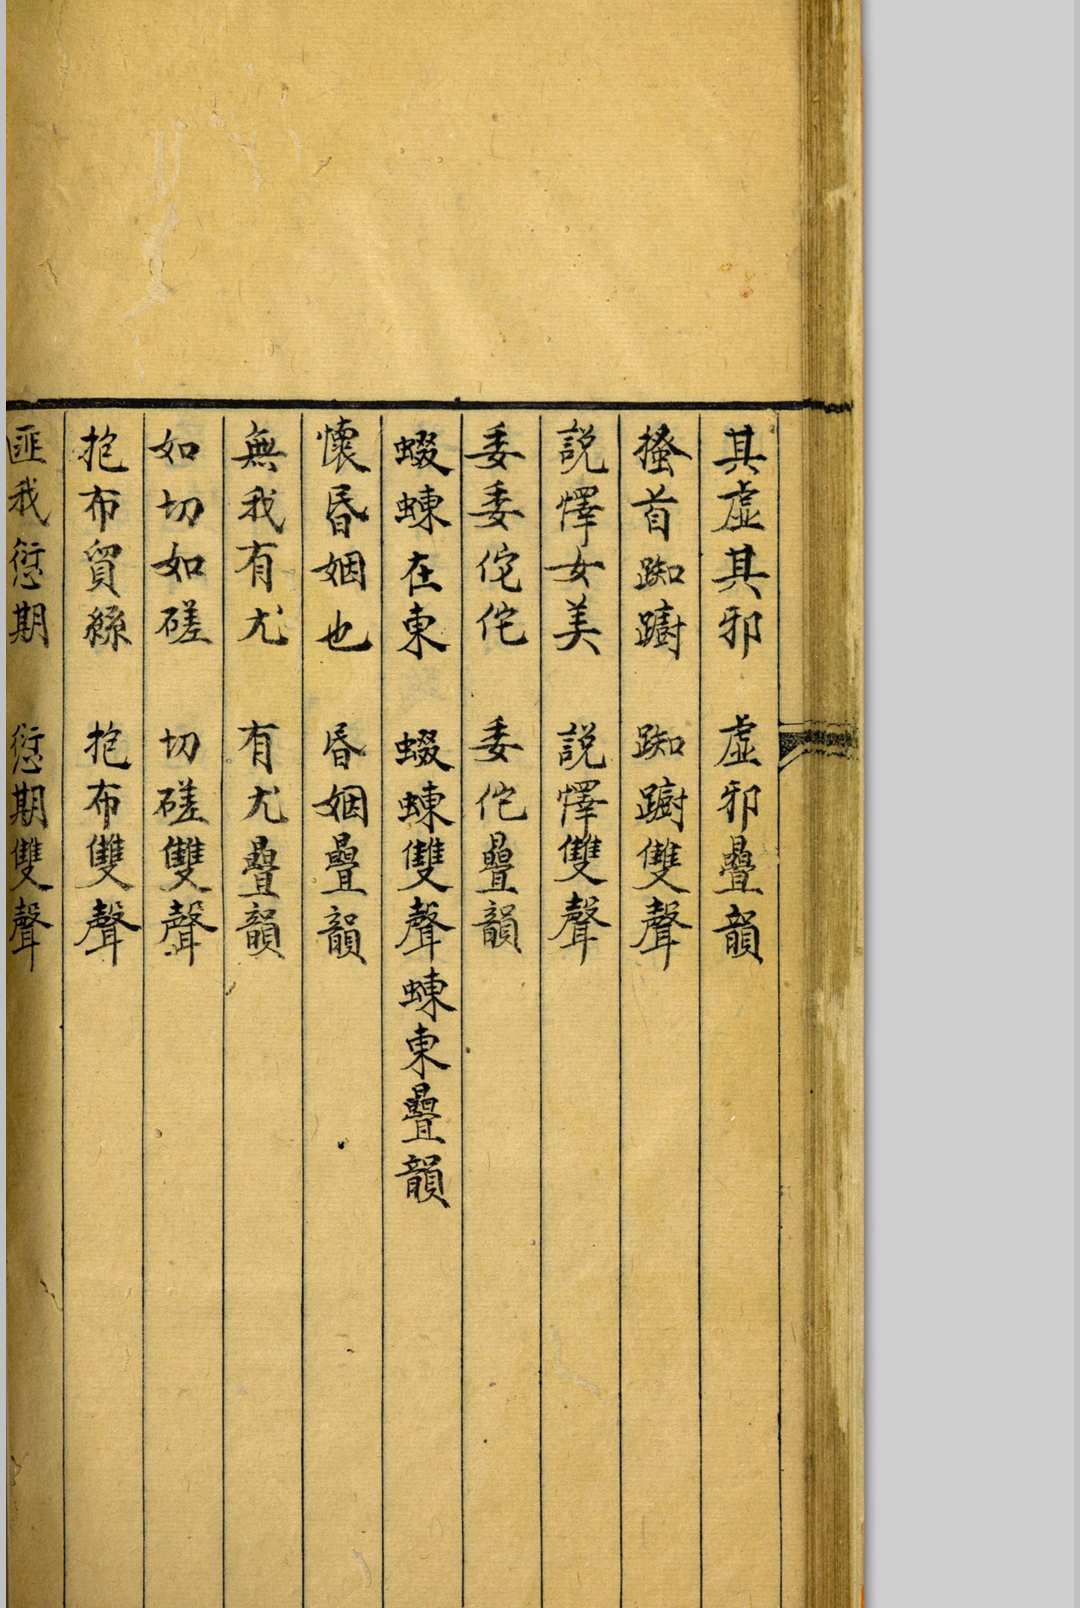 其虛其邪　虛邪疊韻
搔首踟躕　踟躕雙聲
説懌女美　説懌雙聲
委委佗佗　委佗疊韻
蝃蝀在東　蝃蝀雙聲蝀東疊韻
懷昬姻也　昬姻疊韻
無我有尤　有尤疊韻
如切如磋　切磋雙聲
抱布貿絲　抱布雙聲
匪我愆期　愆期雙聲